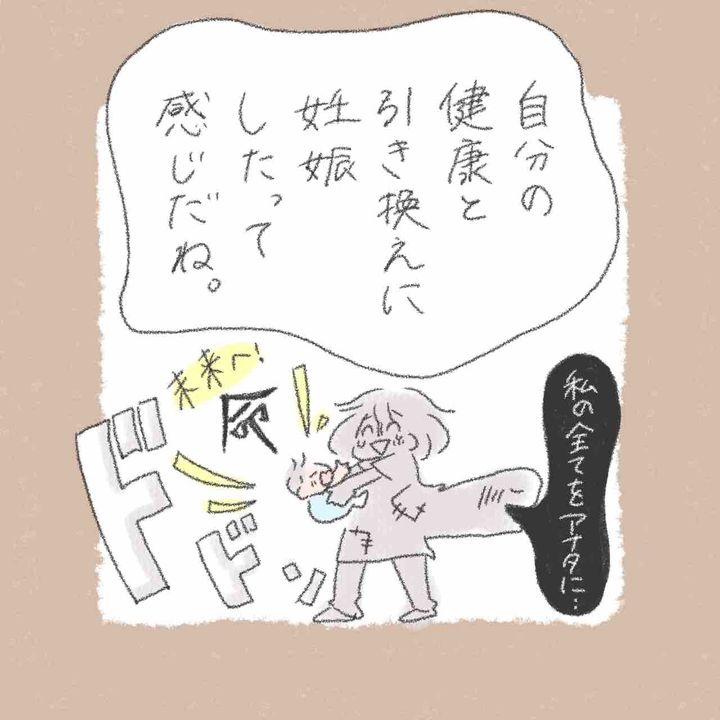 自分の
健康と
引き換えに
妊娠
したって
感じだね。
未来へ!
灰
ドドン
私の全てをアナタに…